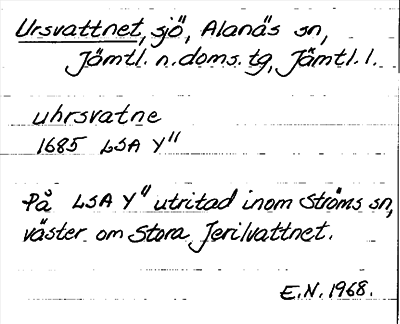 Ursvattnet, sjö, Alanäs sn,
Jämtl. n. doms. tg, Jämtl. l.
uhrsvatne
1685 LSA Y"
På LSA Y" utritad inom Ströms sn,
väster om Stora Jerilvattnet.
E.N. 1968.